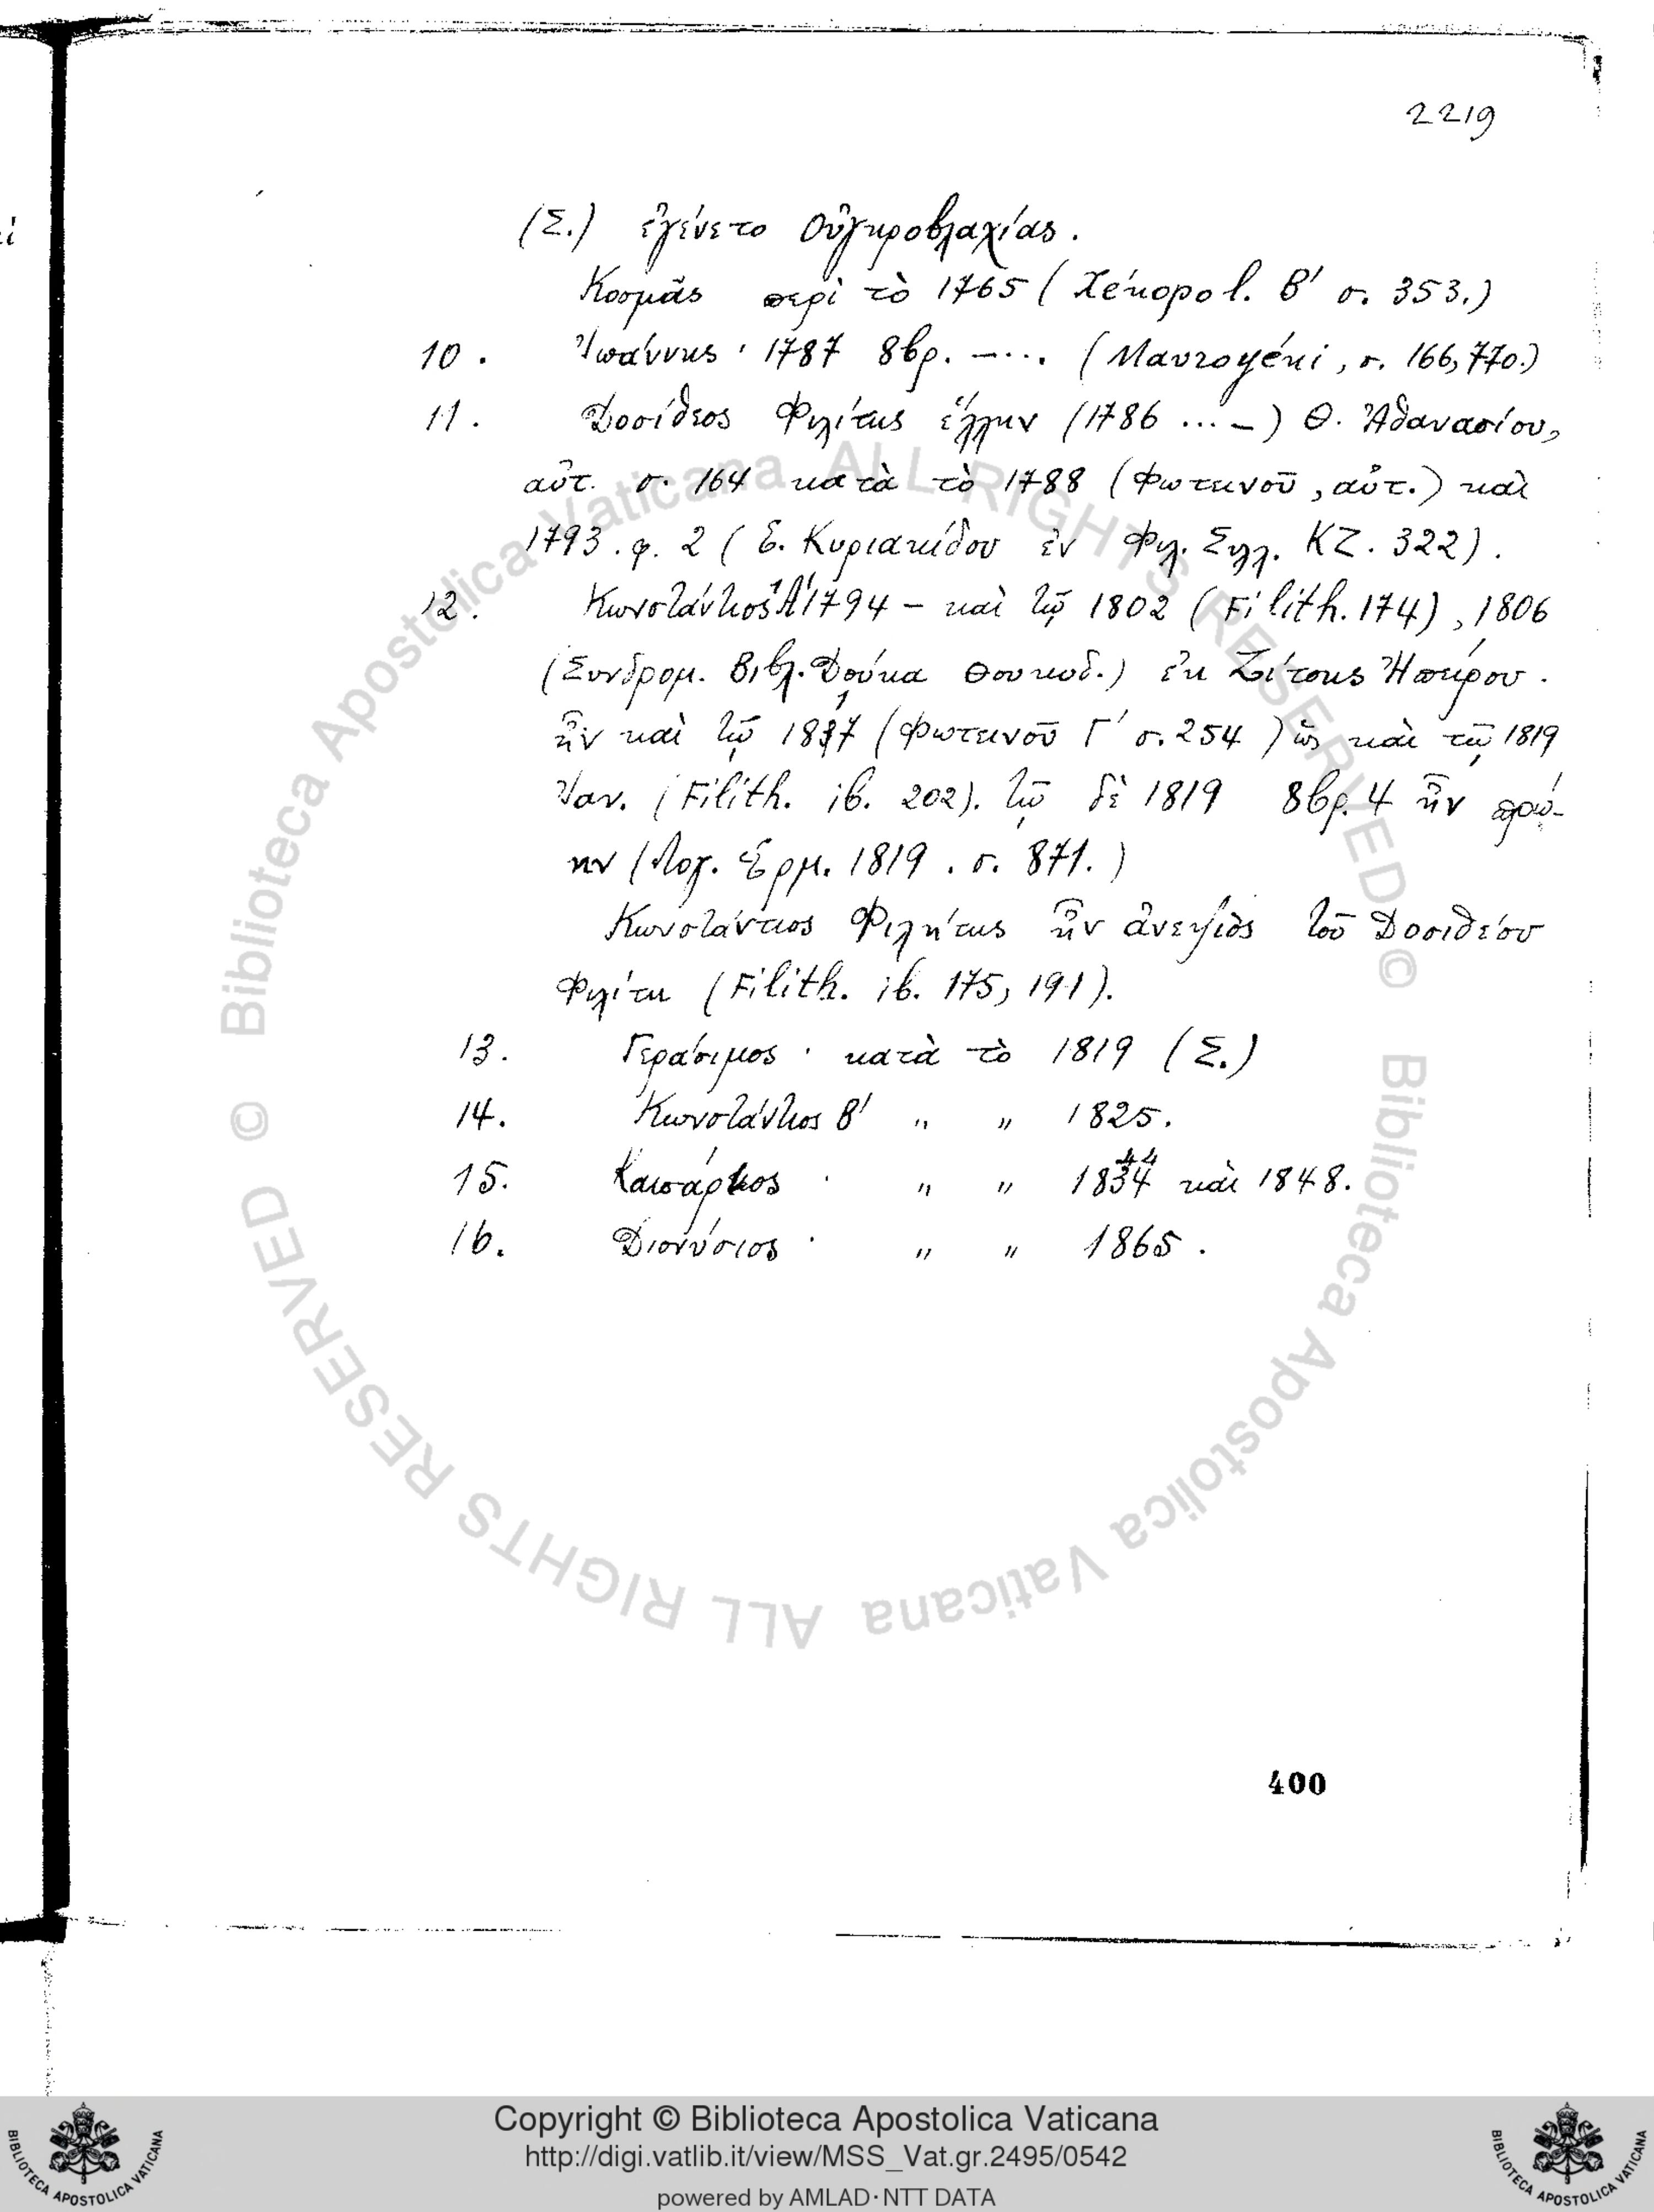 2219
(Σ.) ἐγένετο Οὐγκροβλαχίας.
Κοσμᾶς περὶ τὸ 1765 (Xénopol. Β' σ. 353.)
10. Ἰωάννης · 1787 8βρ. —... (Mavroyéni, σ. 166, 770.)
11. Δοσίθεος Φιλίτης ἕλλην (1786 ... —) Θ. Ἀθανασίου,
αὐτ. σ. 164 κατὰ τὸ 1788 (Φωτεινοῦ, αὐτ.) καὶ
1793. φ. 2 (Ε. Κυριακίδου ἐν Φιλ. Συλλ. ΚΖ. 322).
12. Κωνστάντιος Α' 1794 — καὶ τῷ 1802 (Filith. 174), 1806
(Συνδρομ. Βιβλ. Δούκα Θουκυδ.) ἐκ Ζίτσης Ἠπείρου.
ἦν καὶ τῷ 1817 (Φωτεινοῦ Γ' σ. 254) ὡς καὶ τῷ 1819
Ἰαν. (Filith. ib. 202). τῷ δὲ 1819 8βρ. 4 ἦν πρώ-
ην (Λογ. Ἑρμ. 1819. σ. 871.)
Κωνστάντιος Φιλήτης ἦν ἀνεψιὸς τοῦ Δοσιθέου
Φιλίτη (Filith. ib. 175, 191).
13. Γεράσιμος · κατὰ τὸ 1819 (Σ.)
14. Κωνστάντιος Β' " " 1825.
15. Καισάριος · " " 1844 καὶ 1848.
16. Διονύσιος · " " 1865.
400
© Biblioteca Apostolica Vaticana ALL RIGHTS RESERVED © Biblioteca Apostolica Vaticana ALL RIGHTS RESERVED
Copyright © Biblioteca Apostolica Vaticana
http://digi.vatlib.it/view/MSS_Vat.gr.2495/0542
powered by AMLAD·NTT DATA
BIBLIOTECA APOSTOLICA VATICANA
BIBLIOTECA APOSTOLICA VATICANA